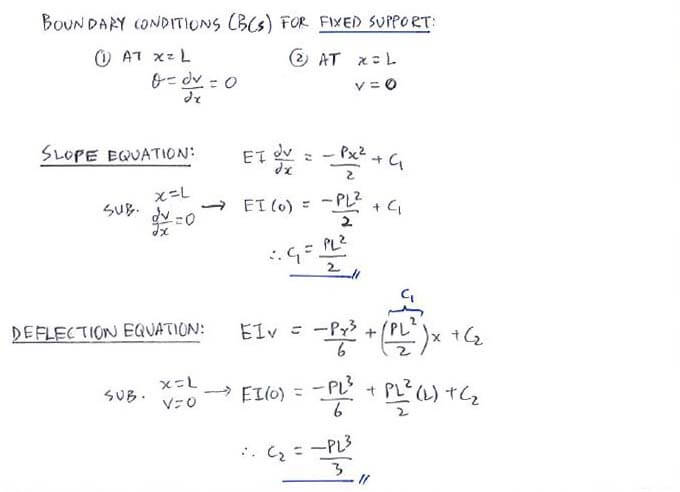 BOUNDARY CONDITIONS (BCs) FOR FIXED SUPPORT:
① AT x=L ② AT x=L
θ = dv/dx = 0 v = 0
SLOPE EQUATION: EI dv/dx = -Px²/2 + C₁
SUB. x=L dv/dx=0 → EI(0) = -PL²/2 + C₁
∴ C₁ = PL²/2 //
C₁
DEFLECTION EQUATION: EIv = -Px³/6 + (PL²/2)x + C₂
SUB. x=L v=0 → EI(0) = -PL³/6 + PL²/2 (L) + C₂
∴ C₂ = -PL³/3 //